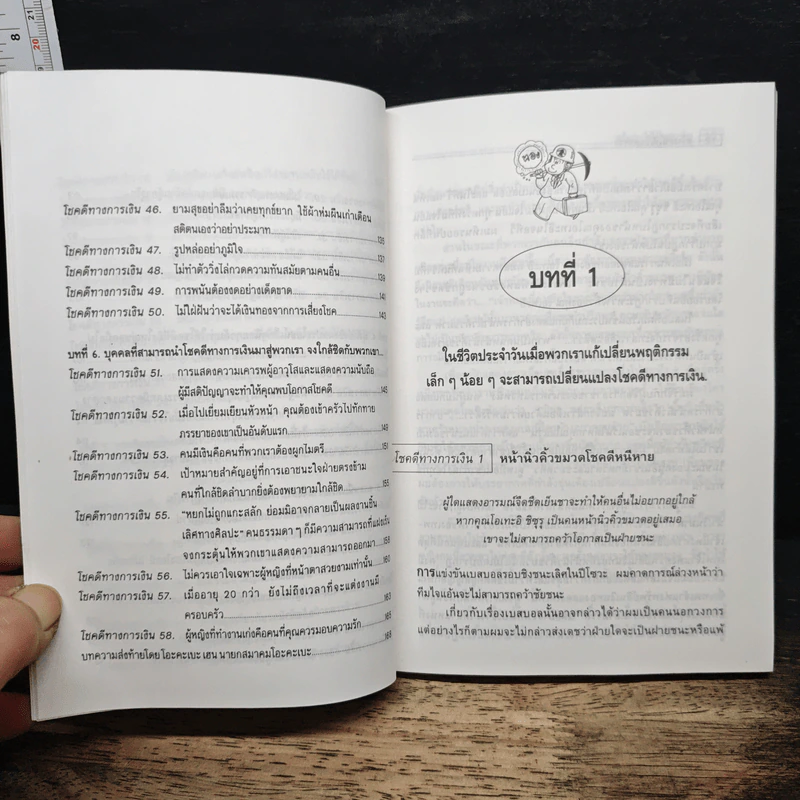 8
20
21
โชคดีทางการเงิน 46. ยามสุขอย่าลืมว่าเคยทุกข์ยาก ใช้ผ้าห่มผืนเก่าเตือน
สติตนเองว่าอย่าประมาท 135
โชคดีทางการเงิน 47. รูปหล่ออย่าภูมิใจ 137
โชคดีทางการเงิน 48. ไม่ทำตัววิ่งไล่กวดความทันสมัยตามคนอื่น 139
โชคดีทางการเงิน 49. การพนันต้องงดอย่างเด็ดขาด 141
โชคดีทางการเงิน 50. ไม่ใฝ่ฝันว่าจะได้เงินทองจากการเสี่ยงโชค 143
บทที่ 6. บุคคลที่สามารถนำโชคดีทางการเงินมาสู่พวกเรา จงใกล้ชิดกับพวกเขา
โชคดีทางการเงิน 51. การแสดงความเคารพผู้อาวุโสและแสดงความนับถือ
ผู้มีสติปัญญาจะทำให้คุณพบโอกาสโชคดี 145
โชคดีทางการเงิน 52. เมื่อไปเยี่ยมเยียนหัวหน้า คุณต้องเข้าครัวไปทักทาย
ภรรยาของเขาเป็นอันดับแรก 149
โชคดีทางการเงิน 53. คนมีเงินคือคนที่พวกเราต้องผูกไมตรี 151
โชคดีทางการเงิน 54. เป้าหมายสำคัญอยู่ที่การเอาชนะใจฝ่ายตรงข้าม
คนที่ใกล้ชิดลำบากยิ่งต้องพยายามใกล้ชิด 155
โชคดีทางการเงิน 55. "หยกไม่ถูกแกะสลัก ย่อมมิอาจกลายเป็นผลงานชิ้น
เลิศทางศิลปะ" คนธรรมดา ๆ ก็มีความสามารถที่แฝงเร้น
จงกระตุ้นให้พวกเขาแสดงความสามารถออกมา 158
โชคดีทางการเงิน 56. ไม่ควรเอาใจเฉพาะผู้หญิงที่หน้าตาสวยงามเท่านั้น 160
โชคดีทางการเงิน 57. เมื่ออายุ 20 กว่า ยังไม่ถึงเวลาที่จะแต่งงานมี
ครอบครัว 163
โชคดีทางการเงิน 58. ผู้หญิงที่ทำงานเก่งคือคนที่คุณควรมอบความรัก 165
บทความส่งท้ายโดย โอะคะเบะ เฮน นายกสมาคมโอะคะเบะ 168
บทที่ 1
ในชีวิตประจำวันเมื่อพวกเราแก้เปลี่ยนพฤติกรรม
เล็ก ๆ น้อย ๆ จะสามารถเปลี่ยนแปลงโชคดีทางการเงิน.
โชคดีทางการเงิน 1 หน้านิ่วคิ้วขมวดโชคดีหนีหาย
ผู้ใดแสดงอารมณ์จืดชืดเย็นชาจะทำให้คนอื่นไม่อยากอยู่ใกล้
หากคุณโอเทะอิ ชิซุรุ เป็นคนหน้านิ่วคิ้วขมวดอยู่เสมอ
เขาจะไม่สามารถคว้าโอกาสเป็นฝ่ายชนะ
การแข่งขันเบสบอลรอบชิงชนะเลิศในปีโชวะ ผมคาดการณ์ล่วงหน้าว่า
ทีมไจแอ้นจะไม่สามารถคว้าชัยชนะ
เกี่ยวกับเรื่องเบสบอลนั้นอาจกล่าวได้ว่าผมเป็นคนนอกวงการ
แต่อย่างไรก็ตามผมจะไม่กล่าวส่งเดชว่าฝ่ายใดจะเป็นฝ่ายชนะหรือแพ้